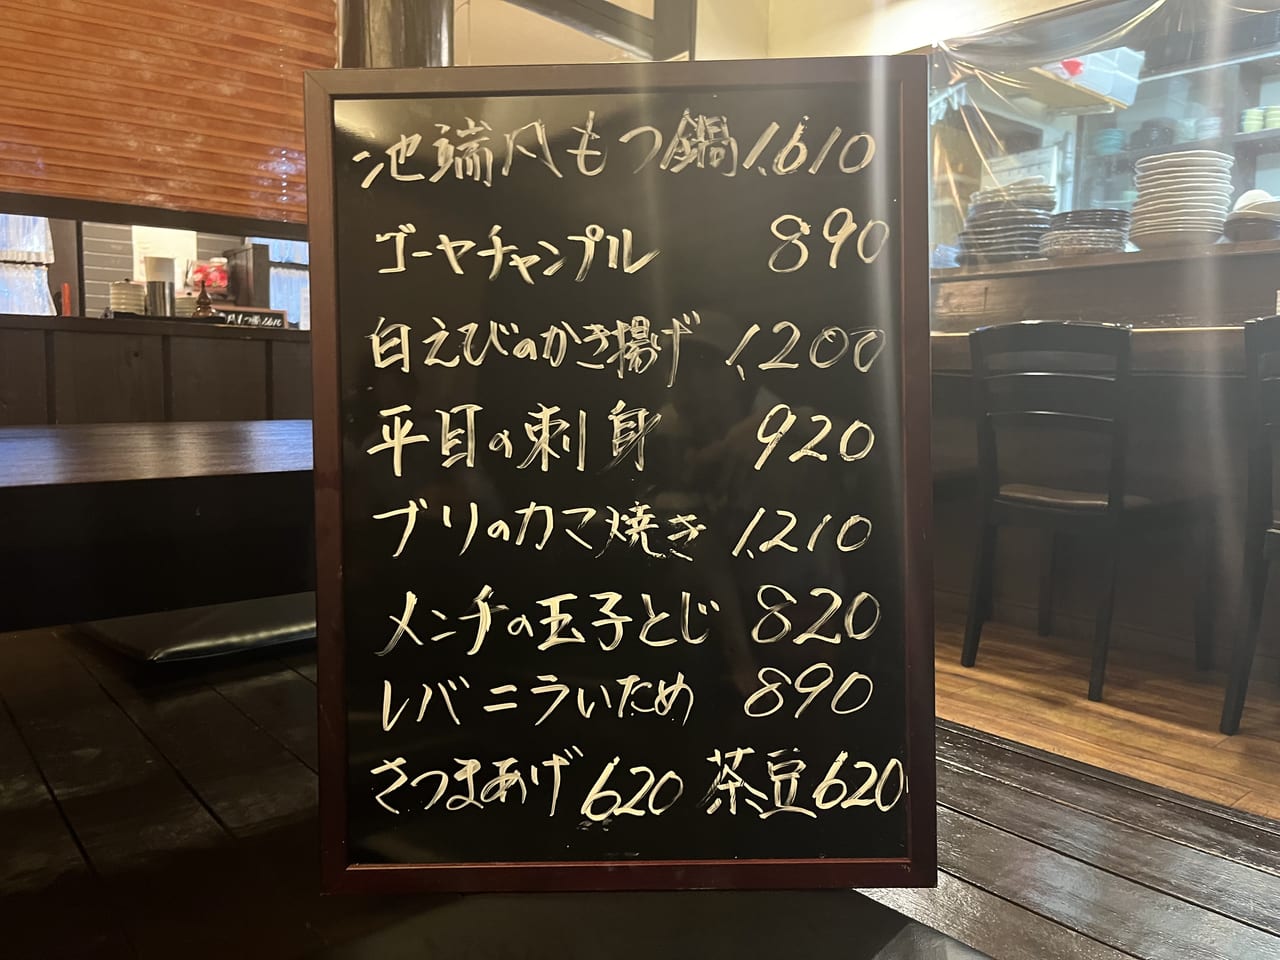 池端凡もつ鍋 1,610
ゴーヤチャンプル 890
白えびのかき揚げ 1,200
平目の刺身 920
ブリのカマ焼き 1,210
メンチの玉子とじ 820
レバニラいため 890
さつまあげ 620 茶豆 620